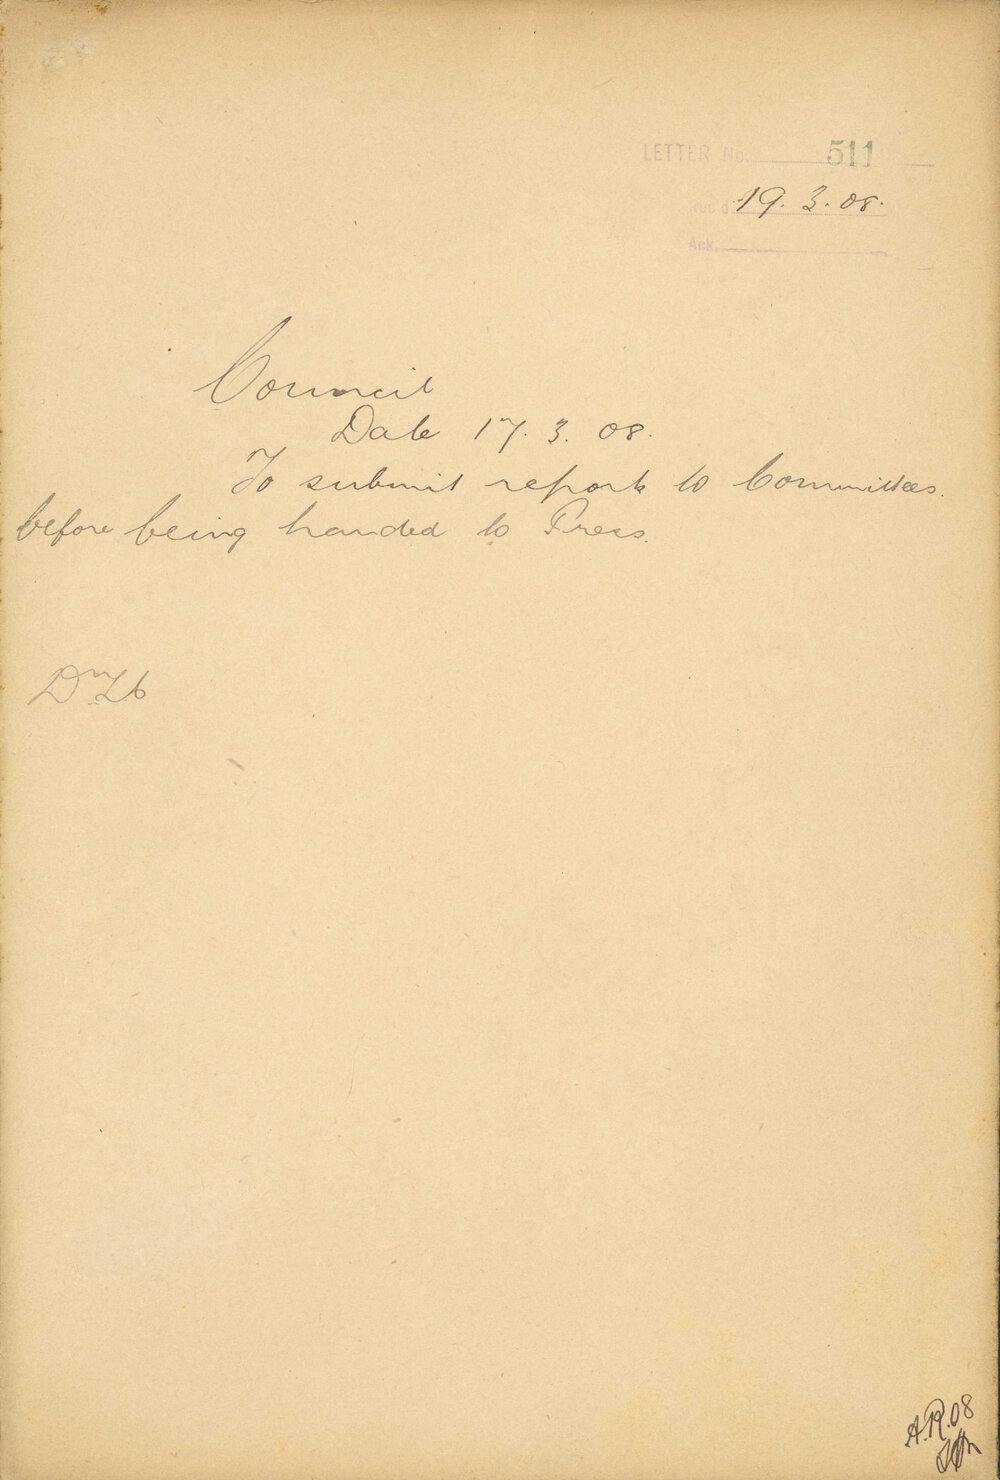 LETTER No. 511
Rec'd 19.3.08.
Ack.
Council
Date 17.3.08.
To submit reports to Committees
before being handed to Press.
A.R.08